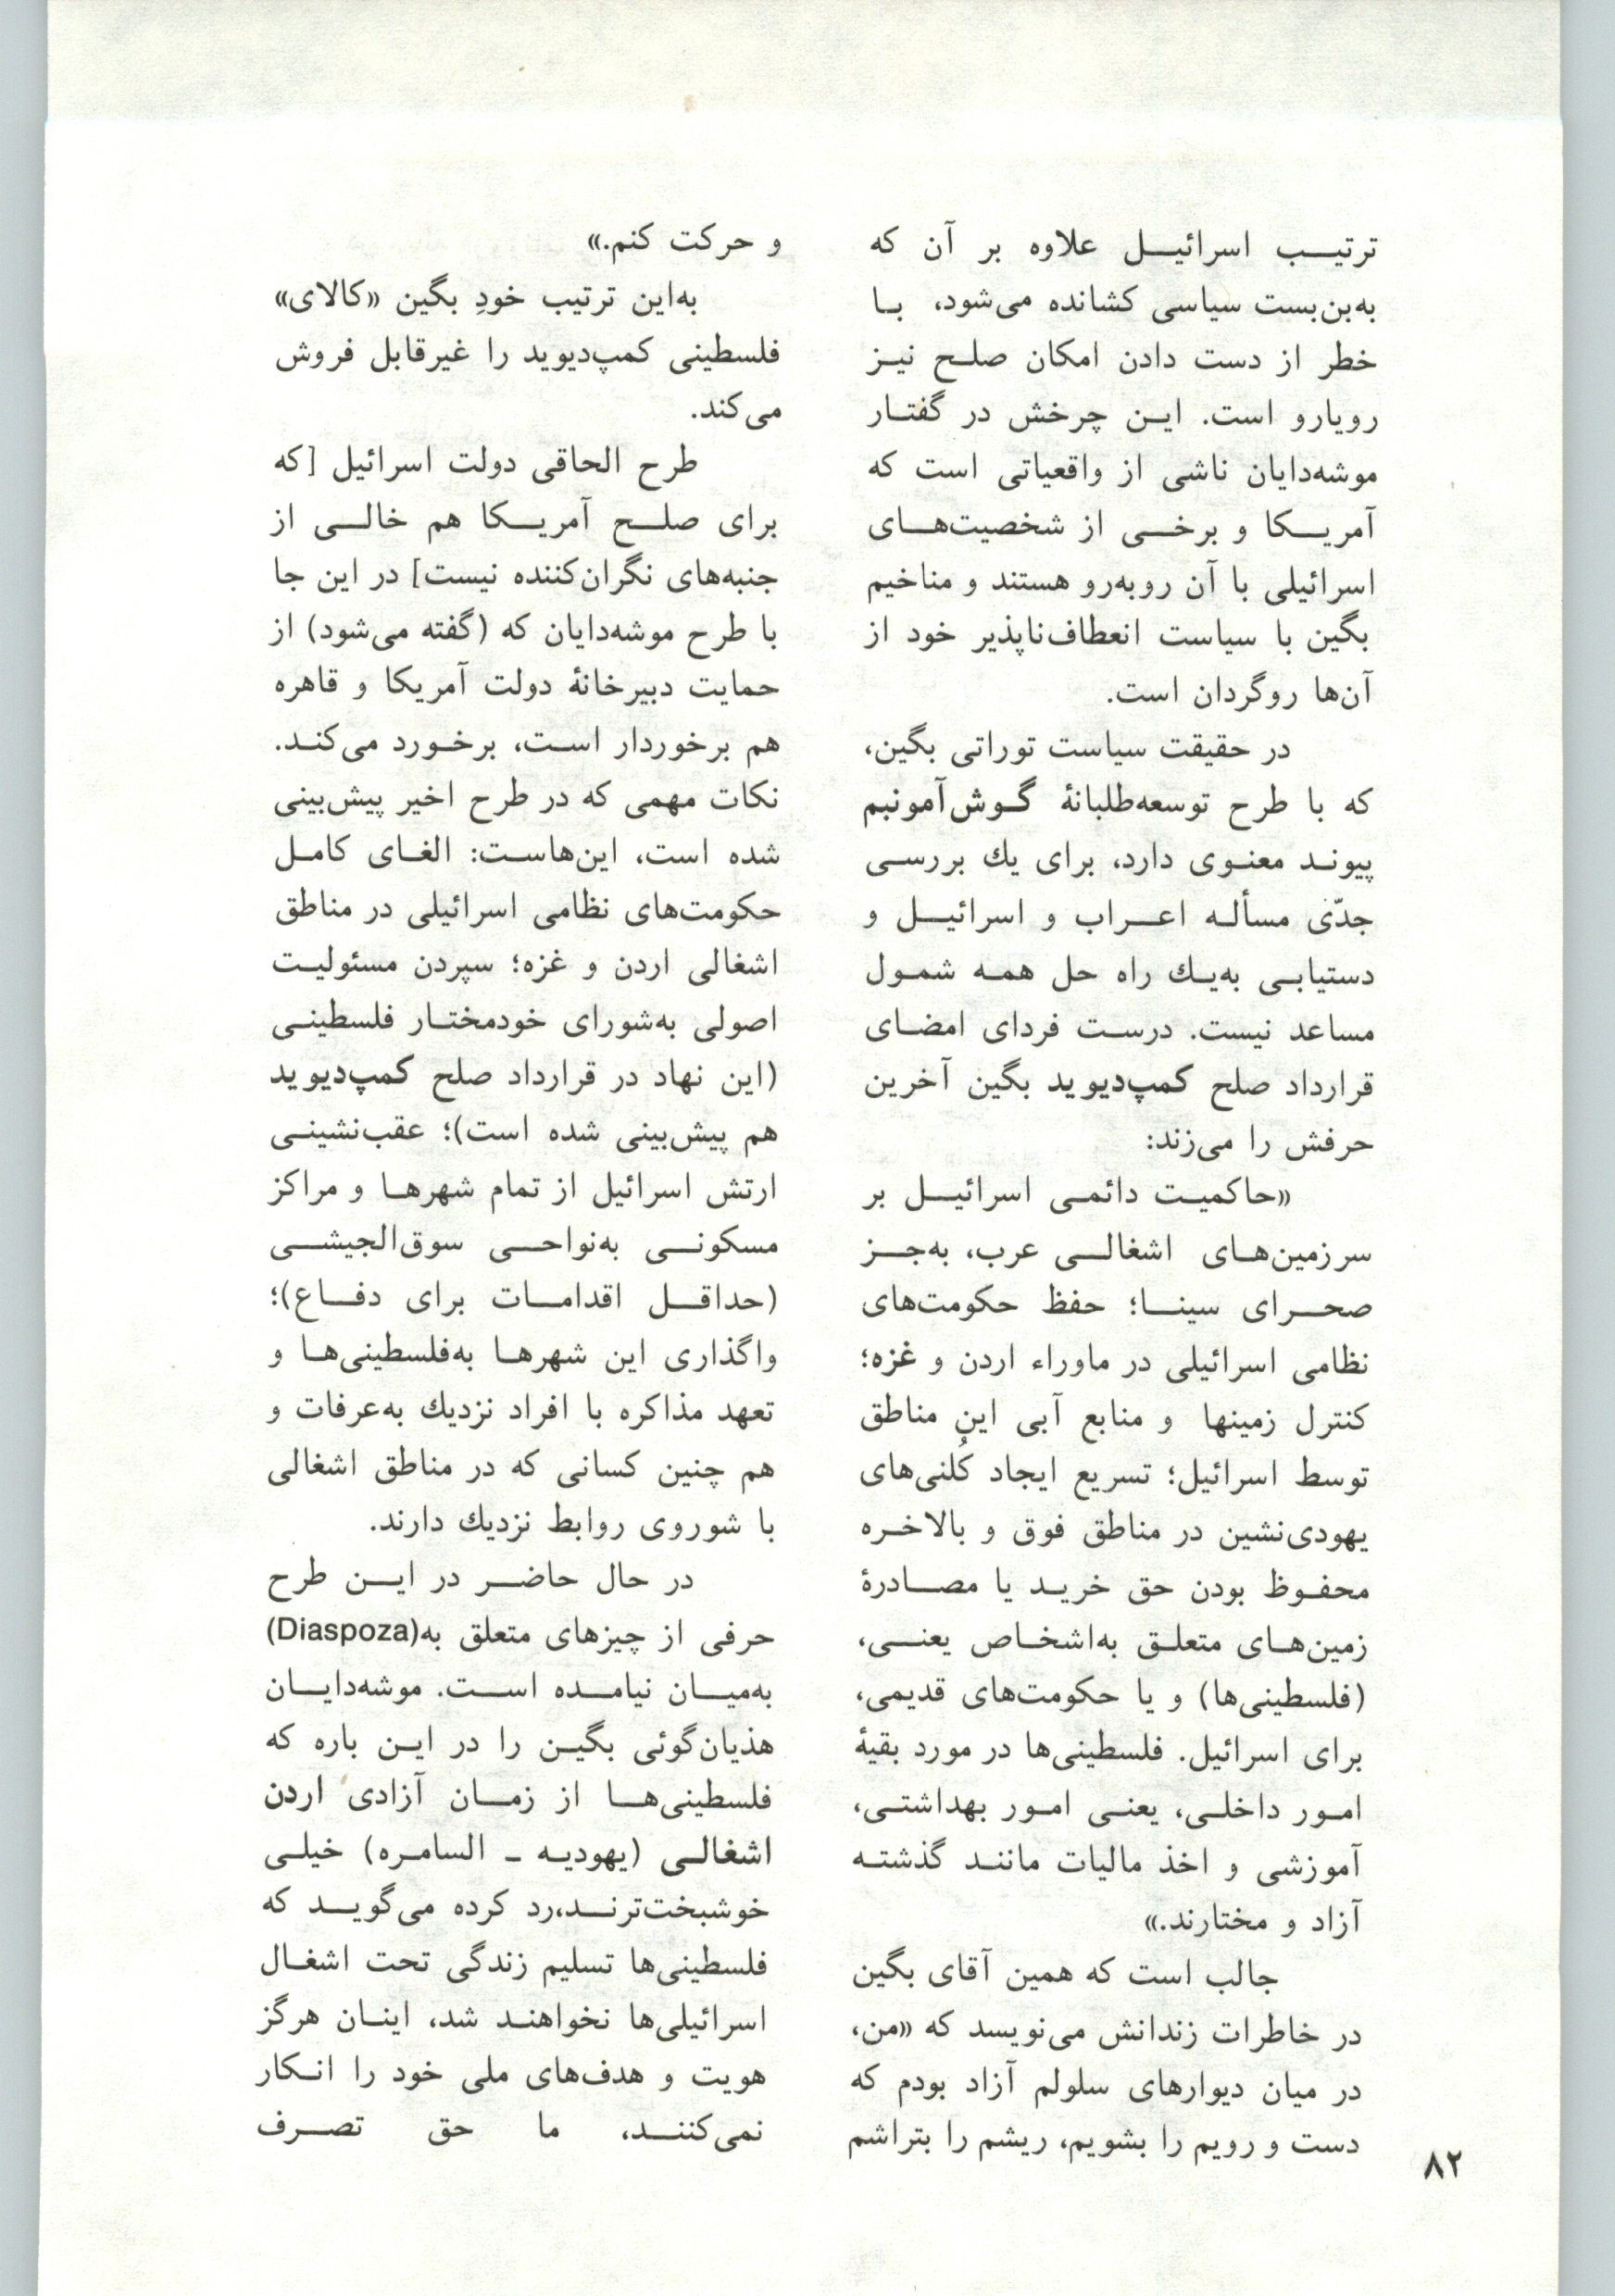 ترتیب اسرائیل علاوه بر آن که
به‌بن‌بست سیاسی کشانده می‌شود، با
خطر از دست دادن امکان صلح نیز
رویارو است. این چرخش در گفتار
موشه‌دایان ناشی از واقعیاتی است که
آمریکا و برخی از شخصیت‌های
اسرائیلی با آن روبه‌رو هستند و مناخیم
بگین با سیاست انعطاف‌ناپذیر خود از
آن‌ها روگردان است.
در حقیقت سیاست توراتی بگین،
که با طرح توسعه‌طلبانهٔ گوش‌آمونیم
پیوند معنوی دارد، برای یك بررسی
جدّی مسأله اعراب و اسرائیل و
دستیابی به‌یك راه حل همه شمول
مساعد نیست. درست فردای امضای
قرارداد صلح کمپ‌دیوید بگین آخرین
حرفش را می‌زند:
«حاکمیت دائمی اسرائیل بر
سرزمین‌های اشغالی عرب، به‌جز
صحرای سینا؛ حفظ حکومت‌های
نظامی اسرائیلی در ماوراء اردن و غزه؛
کنترل زمینها و منابع آبی این مناطق
توسط اسرائیل؛ تسریع ایجاد کُلنی‌های
یهودی‌نشین در مناطق فوق و بالاخره
محفوظ بودن حق خرید یا مصادرهٔ
زمین‌های متعلق به‌اشخاص یعنی،
(فلسطینی‌ها) و یا حکومت‌های قدیمی،
برای اسرائیل. فلسطینی‌ها در مورد بقیهٔ
امور داخلی، یعنی امور بهداشتی،
آموزشی و اخذ مالیات مانند گذشته
آزاد و مختارند.»
جالب است که همین آقای بگین
در خاطرات زندانش می‌نویسد که «من،
در میان دیوارهای سلولم آزاد بودم که
دست و رویم را بشویم، ریشم را بتراشم
و حرکت کنم.»
به‌این ترتیب خودِ بگین «کالای»
فلسطینی کمپ‌دیوید را غیرقابل فروش
می‌کند.
طرح الحاقی دولت اسرائیل [که
برای صلح آمریکا هم خالی از
جنبه‌های نگران‌کننده نیست] در این جا
با طرح موشه‌دایان که (گفته می‌شود) از
حمایت دبیرخانهٔ دولت آمریکا و قاهره
هم برخوردار است، برخورد می‌کند.
نکات مهمی که در طرح اخیر پیش‌بینی
شده است، این‌هاست: الغای کامل
حکومت‌های نظامی اسرائیلی در مناطق
اشغالی اردن و غزه؛ سپردن مسئولیت
اصولی به‌شورای خودمختار فلسطینی
(این نهاد در قرارداد صلح کمپ‌دیوید
هم پیش‌بینی شده است)؛ عقب‌نشینی
ارتش اسرائیل از تمام شهرها و مراکز
مسکونی به‌نواحی سوق‌الجیشی
(حداقل اقدامات برای دفاع)؛
واگذاری این شهرها به‌فلسطینی‌ها و
تعهد مذاکره با افراد نزدیك به‌عرفات و
هم چنین کسانی که در مناطق اشغالی
با شوروی روابط نزدیك دارند.
در حال حاضر در این طرح
حرفی از چیزهای متعلق به(Diaspoza)
به‌میان نیامده است. موشه‌دایان
هذیان‌گوئی بگین را در این باره که
فلسطینی‌ها از زمان آزادی اردن
اشغالی (یهودیه ـ السامره) خیلی
خوشبخت‌ترند،رد کرده می‌گوید که
فلسطینی‌ها تسلیم زندگی تحت اشغال
اسرائیلی‌ها نخواهند شد، اینان هرگز
هویت و هدف‌های ملی خود را انکار
نمی‌کنند، ما حق تصرف
۸۲